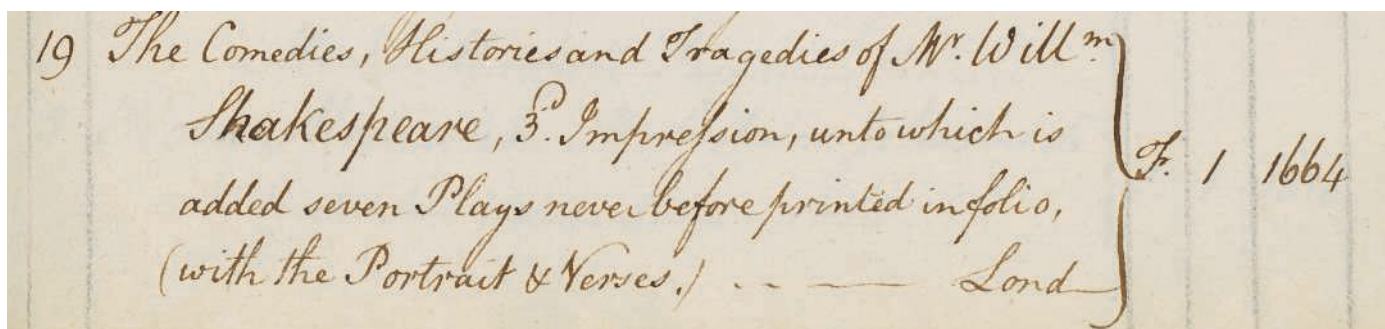 19 The Comedies, Histories and Tragedies of Mr. Willm.
Shakespeare, 3d. Impreſsion, unto which is
added seven Plays never before printed in folio, F. 1 1664
(with the Portrait & Verses.) - - — Lond